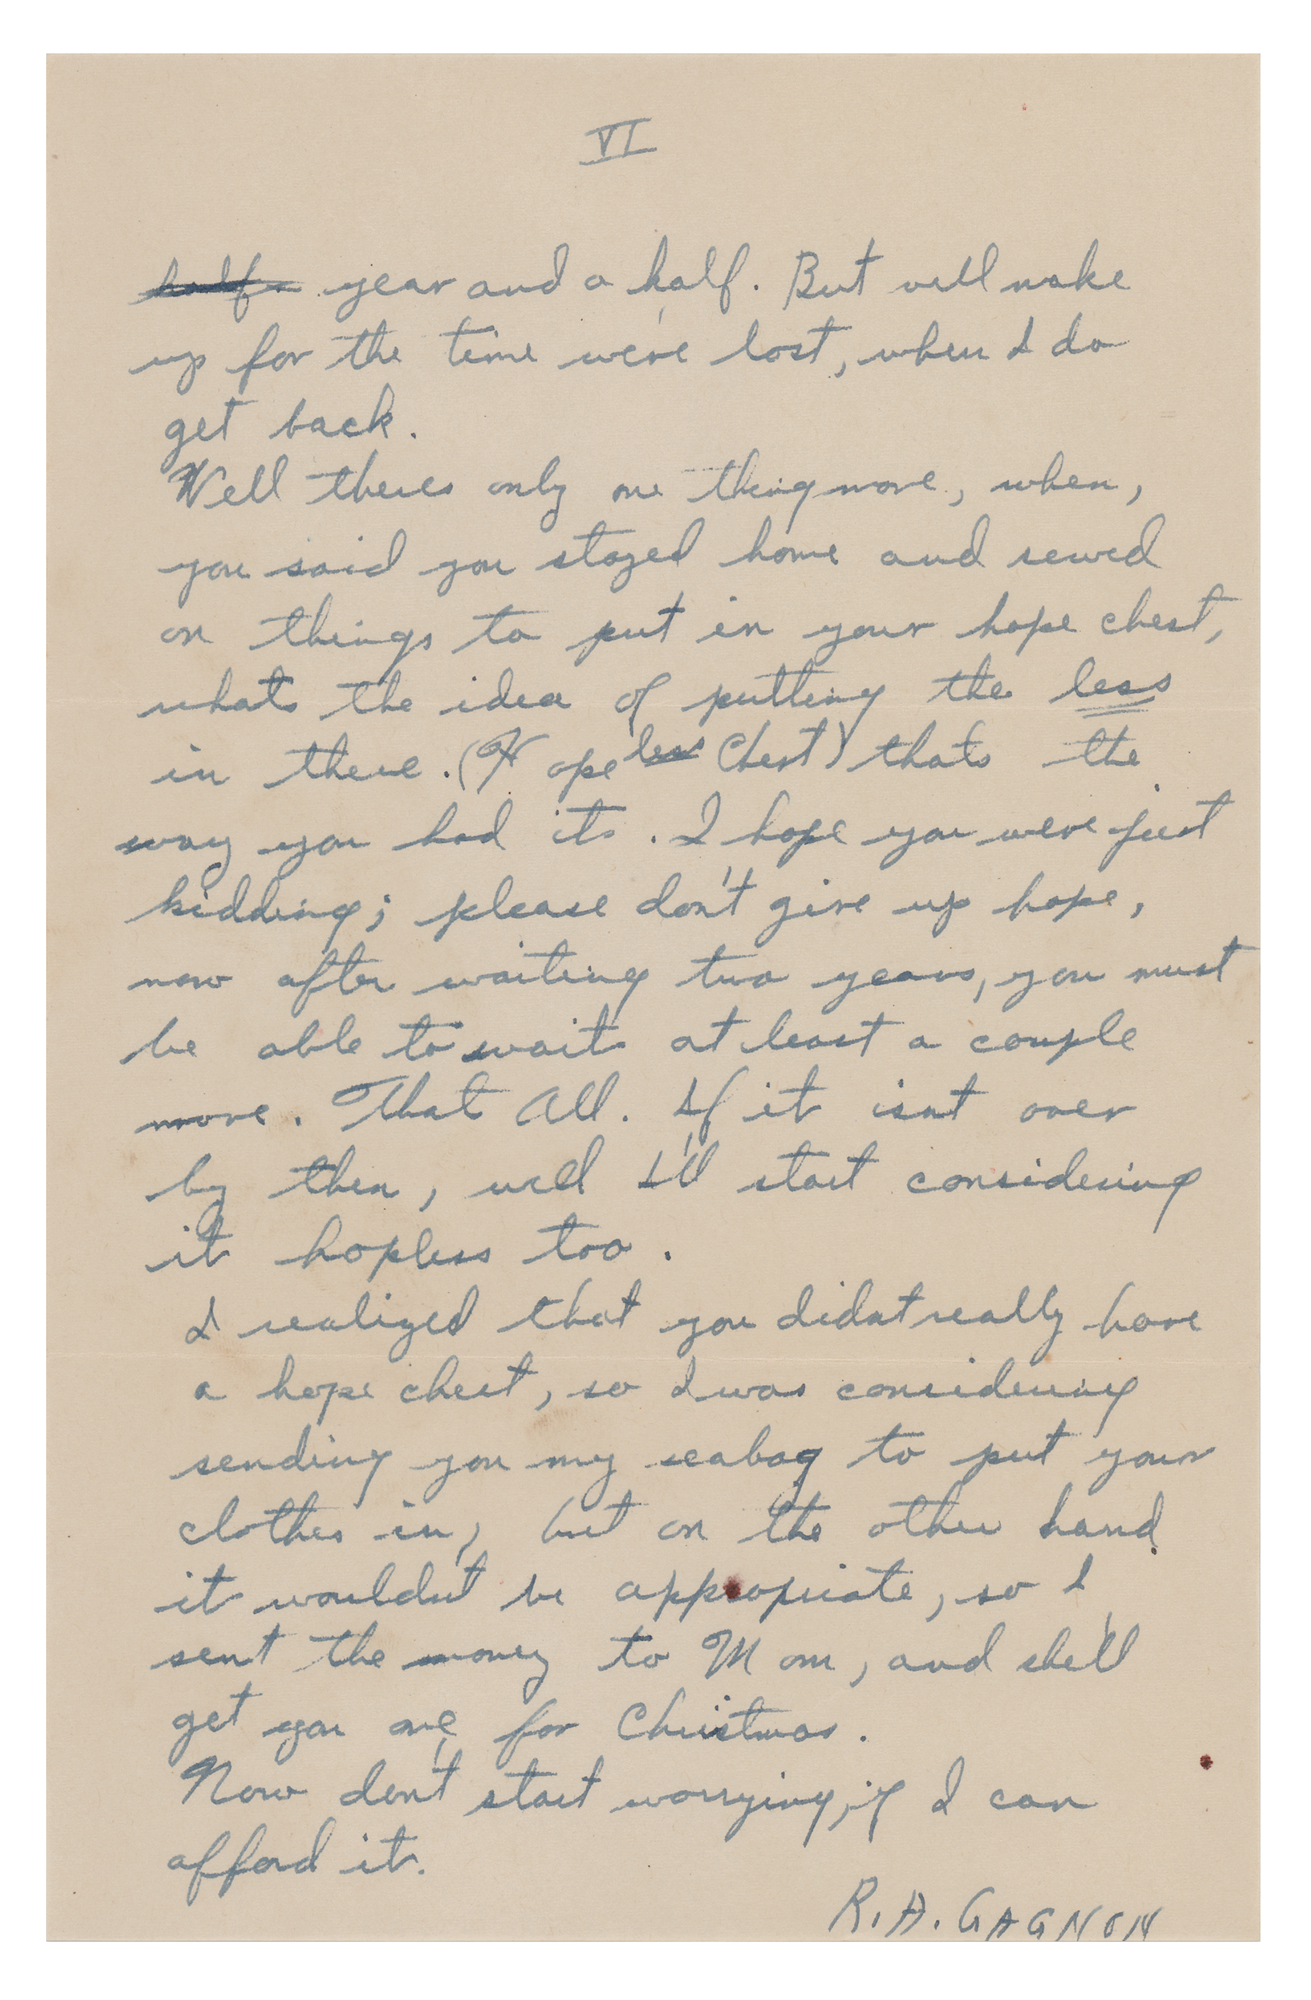 VI
half a year and a half. But well make
up for the time we've lost, when I do
get back.
Well theres only one thing more, when,
you said you stayed home and sewed
on things to put in your hope chest,
whats the idea of putting the less
in there. (Hope less Chest) thats the
way you had it. I hope you were just
kidding; please don't give up hope,
now after waiting two years, you must
be able to wait at least a couple
more. That All. If it isnt over
by then, well I'll start considering
it hopless too.
I realized that you didnt really have
a hope chest, so I was considering
sending you my seabag to put your
clothes in, but on the other hand
it wouldnt be appropriate, so I
sent the money to Mom, and she'll
get you one for Christmas.
Now don't start worrying, if I can
afford it.
R. A. GAGNON